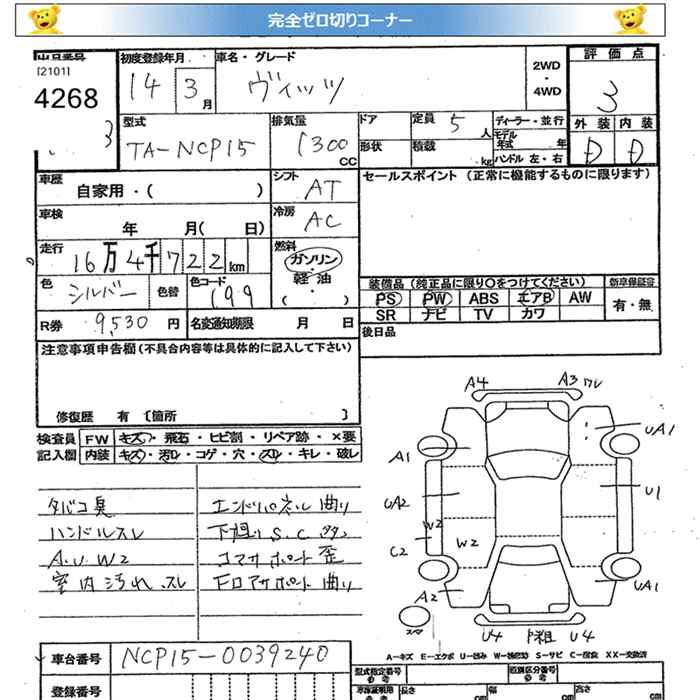 完全ゼロ切りコーナー
出品番号 初度登録年月 車名・グレード 2WD ・ 4WD 評価点
[2101]
4268
14 3月 ヴィッツ 3
3
型式 排気量 ドア 定員 5人 ディーラー・並行 外装 内装
TA-NCP15 1300 CC 形状 積載 kg モデル年式 年 D D
ハンドル 左・右
車歴 自家用・( ) シフト AT セールスポイント (正常に機能するものに限ります)
車検 年 月( 日) 冷房 AC
走行 16万4千722km 燃料 ガソリン・軽油 ( ・ )
色 シルバー 色替 色コード 199 装備品 (純正品に限り○をつけてください) 新車保証書
PS PW ABS エアB AW 有・無
SR ナビ TV カワ
R券 9,530円 名変通知期限 月 日 後日品
注意事項申告欄 (不具合内容等は具体的に記入して下さい)
修復歴 有 〔箇所 〕
検査員 FW キズ・飛石・ヒビ割・リペア跡・×要
記入欄 内装 キズ・汚レ・コゲ・穴・スレ・キレ・破レ
タバコ臭 エンドパネル曲り
ハンドルスレ 下廻りS.C
A.U.W2 コアサポート歪
室内汚れ、スレ Fロアサポート曲り
A4 A3 ワレ
A1 UA1
UA2 U1
W2
C2 W2
A2 UA1
スペア
U4 U4
A－キズ E－エクボ U－凹み W－ S－サビ C－腐食 XX－交換済
車台番号 NCP15-0039240
型式指定番号 類別区分番号
登録番号 長さ cm 幅 cm 高さ cm